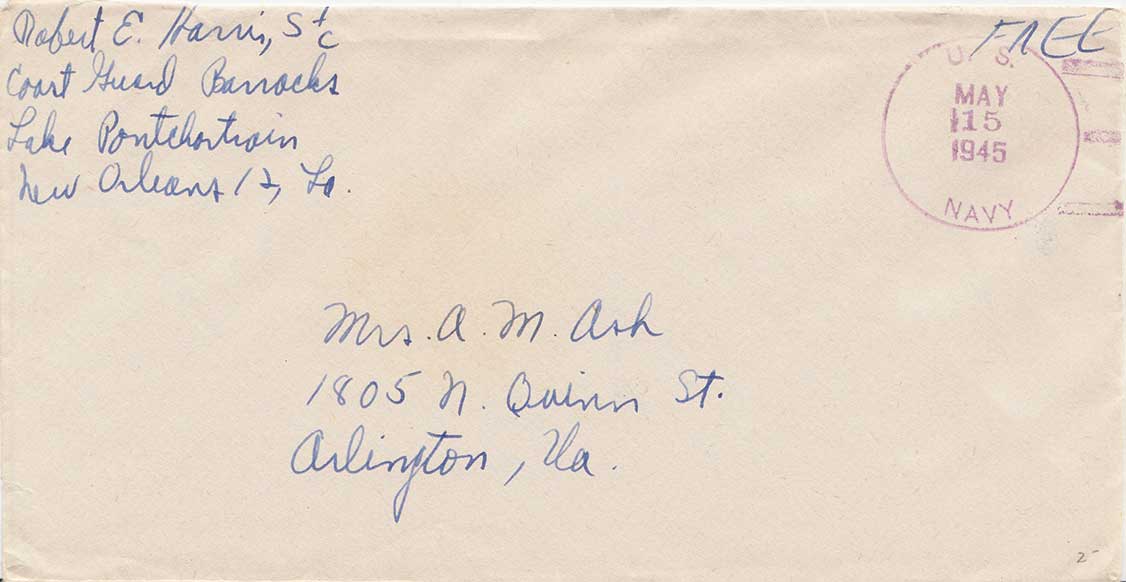 Robert E. Harris, St/c
Coast Guard Barracks
Lake Pontchartrain
New Orleans 12, La.
FREE
U. S.
MAY
15
1945
NAVY
Mrs. A. M. Ash
1805 N. Quinn St.
Arlington, Va.
2-